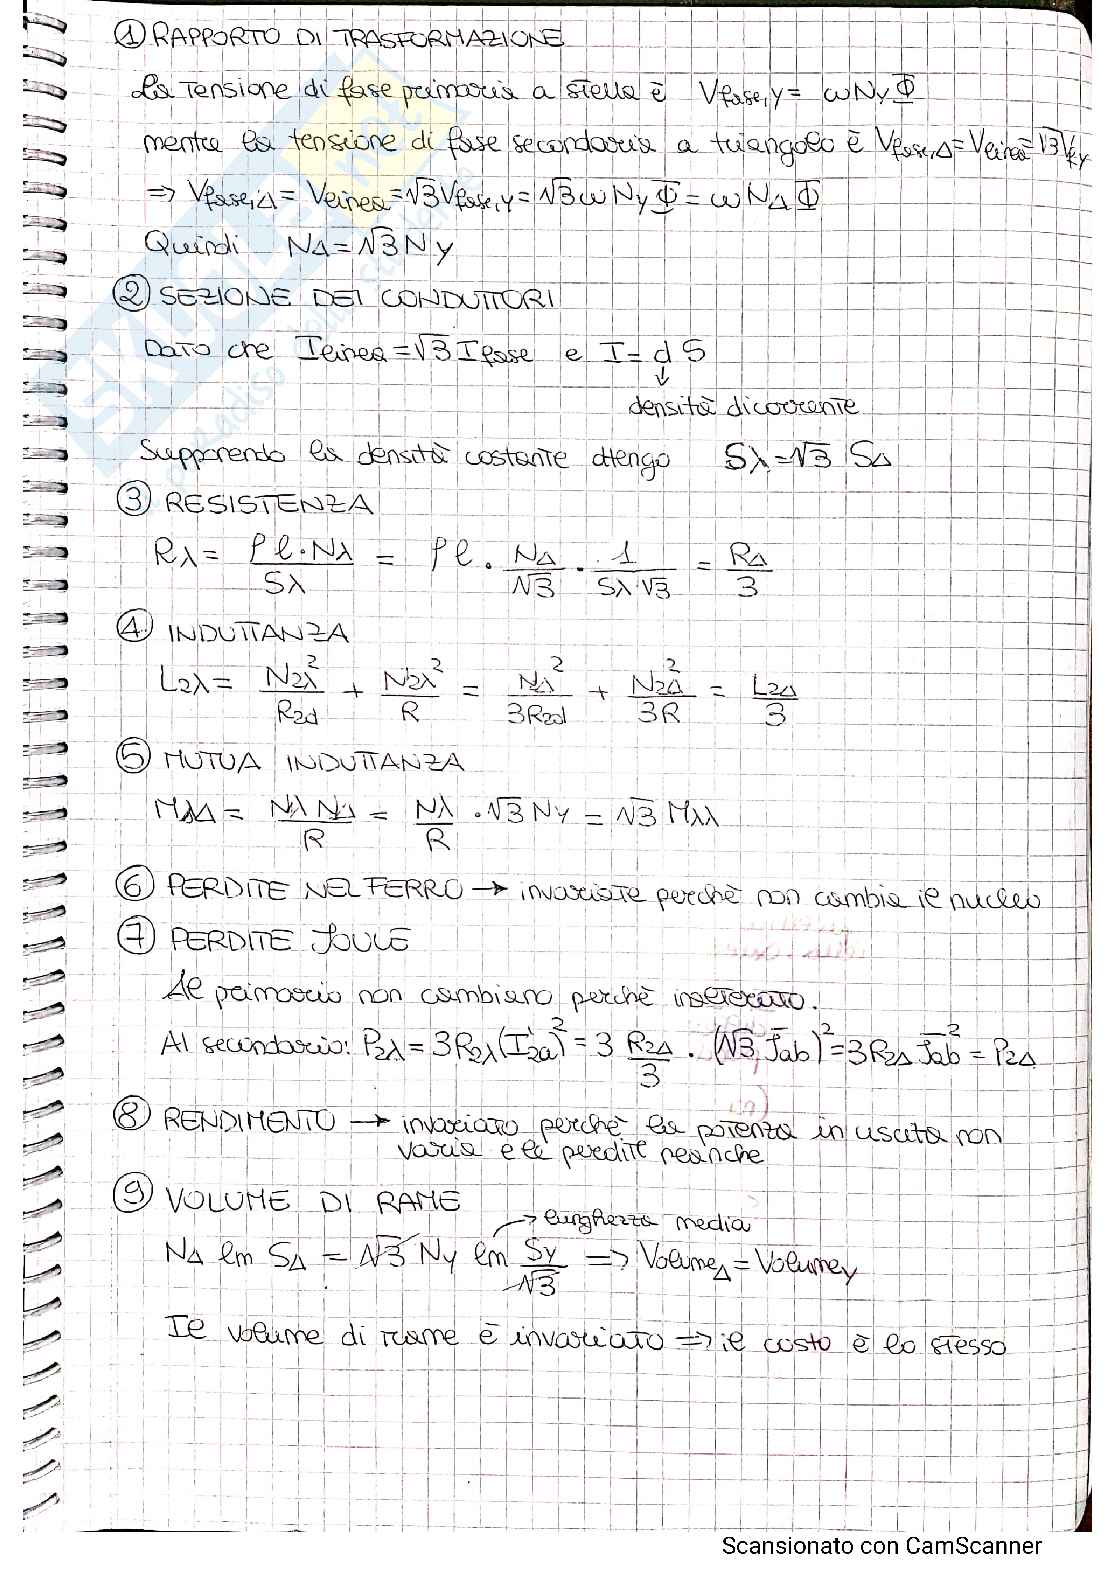 ① RAPPORTO DI TRASFORMAZIONE
La tensione di fase primaria a stella è Vfase,Y = ωNyΦ
mentre la tensione di fase secondaria a triangolo è Vfase,Δ = Vlinea = √3 Vf,Y
=> Vfase,Δ = Vlinea = √3 Vfase,Y = √3 ωNyΦ = ωNΔΦ
Quindi NΔ = √3 Ny
② SEZIONE DEI CONDUTTORI
Dato che Ilinea = √3 Ifase e I = d S
↓
densità di corrente
Supponendo la densità costante ottengo Sλ = √3 SΔ
③ RESISTENZA
Rλ = ρl·Nλ / Sλ = ρl · NΔ/√3 · 1/(Sλ·√3) = RΔ/3
④ INDUTTANZA
L2λ = N2λ²/R2d + N2λ²/R = NΔ²/3R2d + N2Δ²/3R = L2Δ/3
⑤ MUTUA INDUTTANZA
MλΔ = NλNΔ/R = Nλ/R · √3 Ny = √3 Mλλ
⑥ PERDITE NEL FERRO → invariate perchè non cambia il nucleo
⑦ PERDITE JOULE
Al primario non cambiano perchè inalterato.
Al secondario: P2λ = 3R2λ(I'2a)² = 3 R2Δ/3 · (√3 Jab)² = 3R2Δ Jab² = P2Δ
⑧ RENDIMENTO → invariato perchè la potenza in uscita non
varia e le perdite neanche
⑨ VOLUME DI RAME
→ lunghezza media
NΔ lm SΔ = √3 Ny lm Sy/√3 => VolumeΔ = VolumeY
Il volume di rame è invariato => il costo è lo stesso
Scansionato con CamScanner